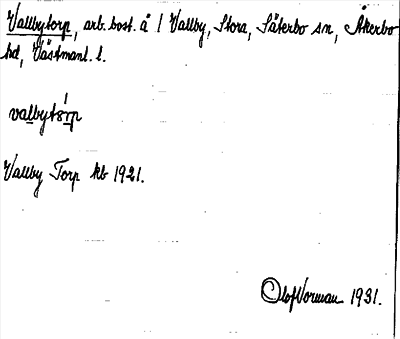 Vallbytorp, arb.bost. å 1 Vallby, Stora, Säterbo sn, Åkerbo
hd, Västmanl. l.
valbytórp
Vallby Torp kb 1921.
Olof Norman 1931.